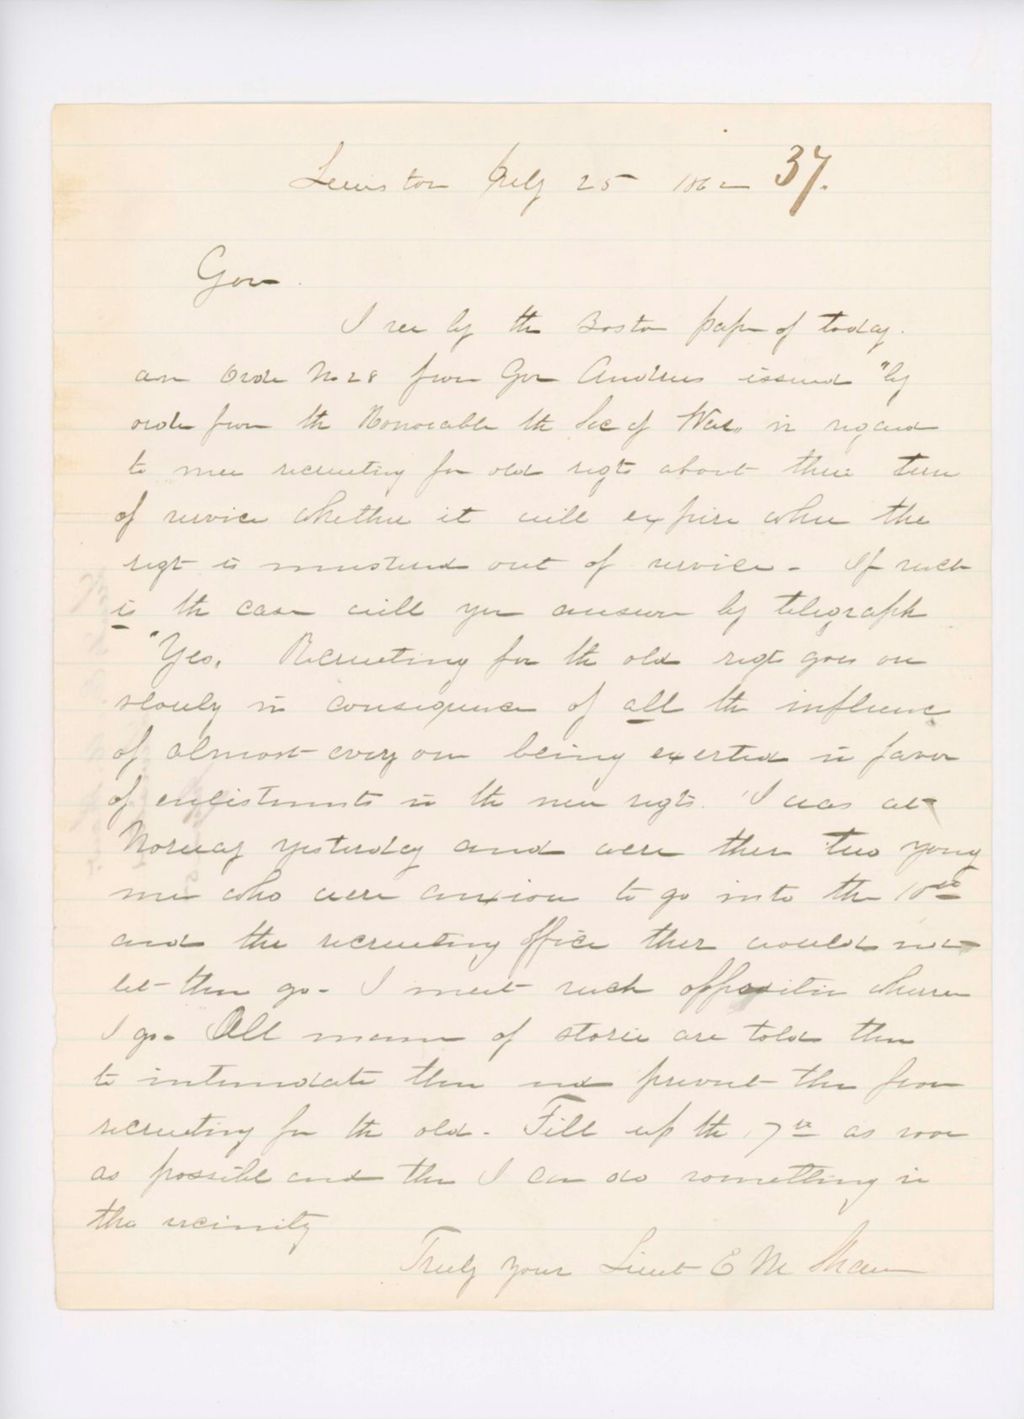 Lewiston July 25 1862 37.
Gov.
I see by the Boston paper of today.
an Order No 28 from Gov Andrew issued "by
order from the Honorable the Sec of War" in regard
to men recruiting for old regts about their term
of service whether it will expire when the
regt is mustered out of service - If such
is the case will you answer by telegraph
"Yes. Recruiting for the old regts goes on
slowly in consequence of all the influence
of almost every one being exerted in favor
of enlistments in the new regts. I was at
Norway yesterday and were there two young
men who were anxious to go into the 10th
and the recruiting office there would not
let them go - I meet such opposition wherever
I go - All manner of stories are told them
to intimidate them and prevent them from
recruiting for the old - Fill up the 17th as soon
as possible and then I can do something in
this vicinity
Truly yours Lieut E M Shaw